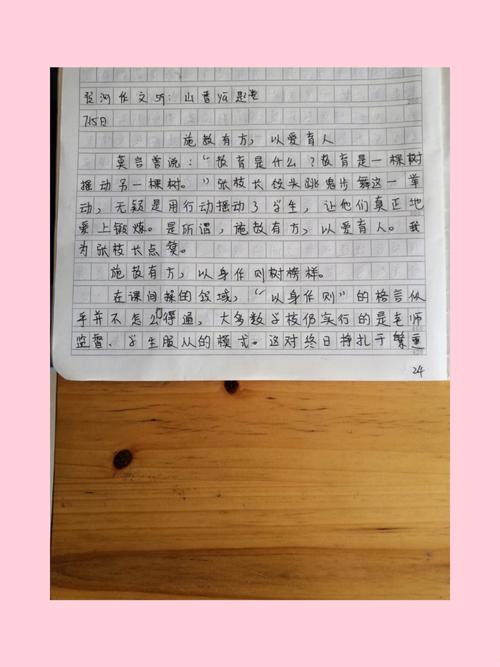 作文59:山香
7.15日
施教有方,以爱育人
莫言曾说:“教育是什么?教育是一棵树
摇动另一棵树。”张校长领头跳鬼步舞这一举
动,无疑是用行动摇动了学生,让他们真正地
爱上锻炼。是所谓,施教有方,以爱育人。我
为张校长点赞。
施教有方,以身作则树榜样。
在课间操的领域,“以身作则”的格言似
乎并不怎么行得通,大多数学校仍实行的是老师
监督、学生服从的模式。这对终日挣扎于繁重
24